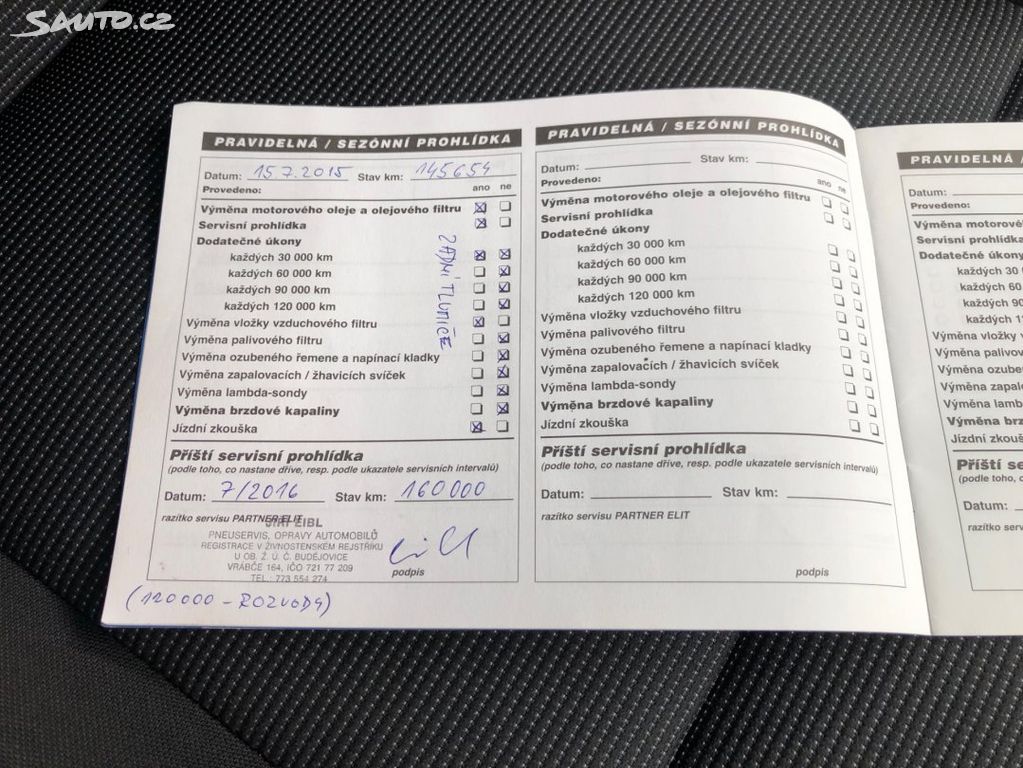 SAUTO.CZ
PRAVIDELNÁ / SEZÓNNÍ PROHLÍDKA
Datum: 15.7.2015 Stav km: 145654
Provedeno: ano ne
Výměna motorového oleje a olejového filtru
Servisní prohlídka
Dodatečné úkony
každých 30 000 km
každých 60 000 km
každých 90 000 km
každých 120 000 km
Výměna vložky vzduchového filtru
Výměna palivového filtru
Výměna ozubeného řemene a napínací kladky
Výměna zapalovacích / žhavicích svíček
Výměna lambda-sondy
Výměna brzdové kapaliny
Jízdní zkouška
ZADNÍ TLUMIČE
Příští servisní prohlídka
(podle toho, co nastane dříve, resp. podle ukazatele servisních intervalů)
Datum: 7/2016 Stav km: 160000
razítko servisu PARTNER ELIT
JIŘÍ LEIBL
PNEUSERVIS, OPRAVY AUTOMOBILŮ
REGISTRACE V ŽIVNOSTENSKÉM REJSTŘÍKU
U OB. Ž. Ú. Č. BUDĚJOVICE
VRÁBČE 164, IČO 721 77 209
TEL.: 773 554 274
podpis
(120000 - ROZVODY)
PRAVIDELNÁ / SEZÓNNÍ PROHLÍDKA
Datum: Stav km:
Provedeno: ano ne
Výměna motorového oleje a olejového filtru
Servisní prohlídka
Dodatečné úkony
každých 30 000 km
každých 60 000 km
každých 90 000 km
každých 120 000 km
Výměna vložky vzduchového filtru
Výměna palivového filtru
Výměna ozubeného řemene a napínací kladky
Výměna zapalovacích / žhavicích svíček
Výměna lambda-sondy
Výměna brzdové kapaliny
Jízdní zkouška
Příští servisní prohlídka
(podle toho, co nastane dříve, resp. podle ukazatele servisních intervalů)
Datum: Stav km:
razítko servisu PARTNER ELIT
podpis
PRAVIDELNÁ /
Datum:
Provedeno:
Výměna motorové
Servisní prohlídka
Dodatečné úkony
každých 30
každých 60
každých 90
každých 1
Výměna vložky v
Výměna palivov
Výměna ozube
Výměna zapalo
Výměna lamb
Výměna brz
Jízdní zkouš
Příští se
(podle toho,
Datum:
razítko serv